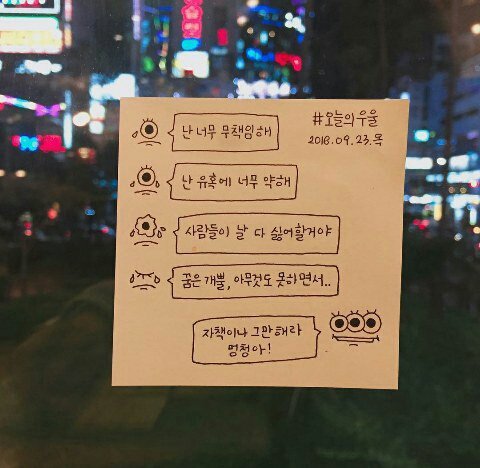 #오늘의우울
2016.09.23.목
난 너무 무책임해
난 유혹에 너무 약해
사람들이 날 다 싫어할거야
꿈은 개뿔, 아무것도 못하면서..
자책이나 그만해라
멍청아!